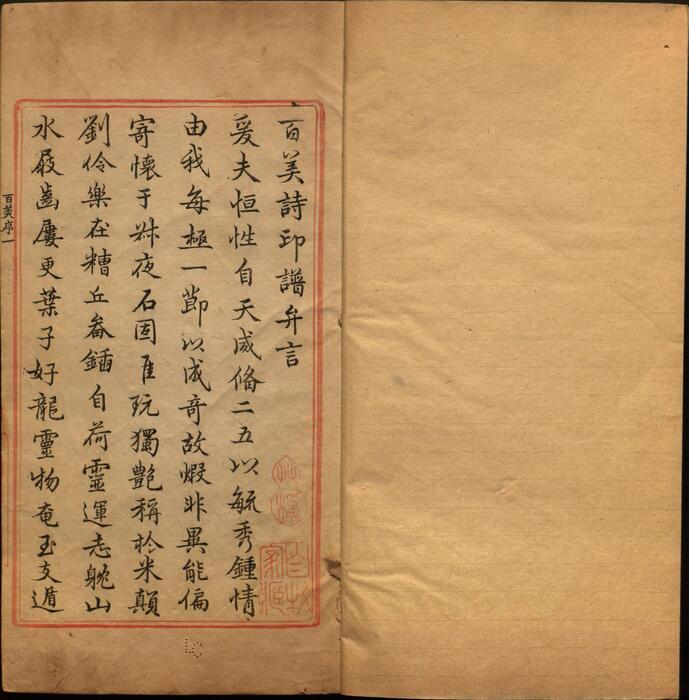 百美詩印譜弁言
爰夫恒性自天咸脩二五以毓秀鍾情
由我每極一節以成奇故嘏非異能偏
寄懷于夜石固堪玩獨艷稱於米顛
劉伶樂在糟丘畚鍤自荷靈運志躭山
水屐齒屢更葉子好龍靈物奄至支遁
百美序一